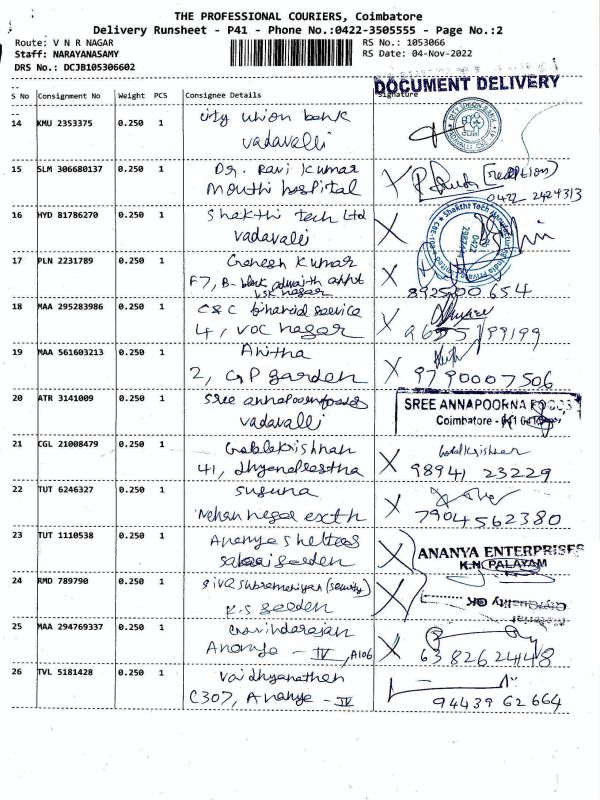 THE PROFESSIONAL COURIERS, Coimbatore
Delivery Runsheet - P41 - Phone No.:0422-3505555 - Page No.:2
Route: V N R NAGAR RS No.: 1053066
Staff: NARAYANASAMY RS Date: 04-Nov-2022
DRS No.: DCJB105306602
DOCUMENT DELIVERY
S No Consignment No Weight PCS Consignee Details Signature
14 KMU 2353375 0.250 1 city union bank
vadavalli
15 SLM 306680137 0.250 1 Dr. Ravi Kumar (reception)
Mouthi hospital 0422 2424313
16 HYD 81786270 0.250 1 Shakthi tech Ltd
vadavalli
17 PLN 2231789 0.250 1 Ganesh Kumar
F7, B-block adwaith appt
VSK nagar 8925200654
18 MAA 295283986 0.250 1 C&C financial service
4, VOC nagar 199199
19 MAA 561603213 0.250 1 Anitha
2, G.P garden 9790007506
20 ATR 3141009 0.250 1 Sree annapoorna foods SREE ANNAPOORNA FOODS
vadavalli Coimbatore
21 CGL 21008479 0.250 1 Gobalakrishnan
41, 98941 23229
22 TUT 6246327 0.250 1 Suguna
Nehru nagar 7904562380
23 TUT 1110538 0.250 1 Ananya Shelters ANANYA ENTERPRISES
K.N. PALAYAM
24 RMD 789790 0.250 1 Siva Subramaniyan (security)
K.S Quality OK
25 MAA 294769337 0.250 1 Govindarajan
Ananya - IV, A106 63826 24148
26 TVL 5181428 0.250 1 Vaidhyanathan
C307, Ananya - IV 94439 62664